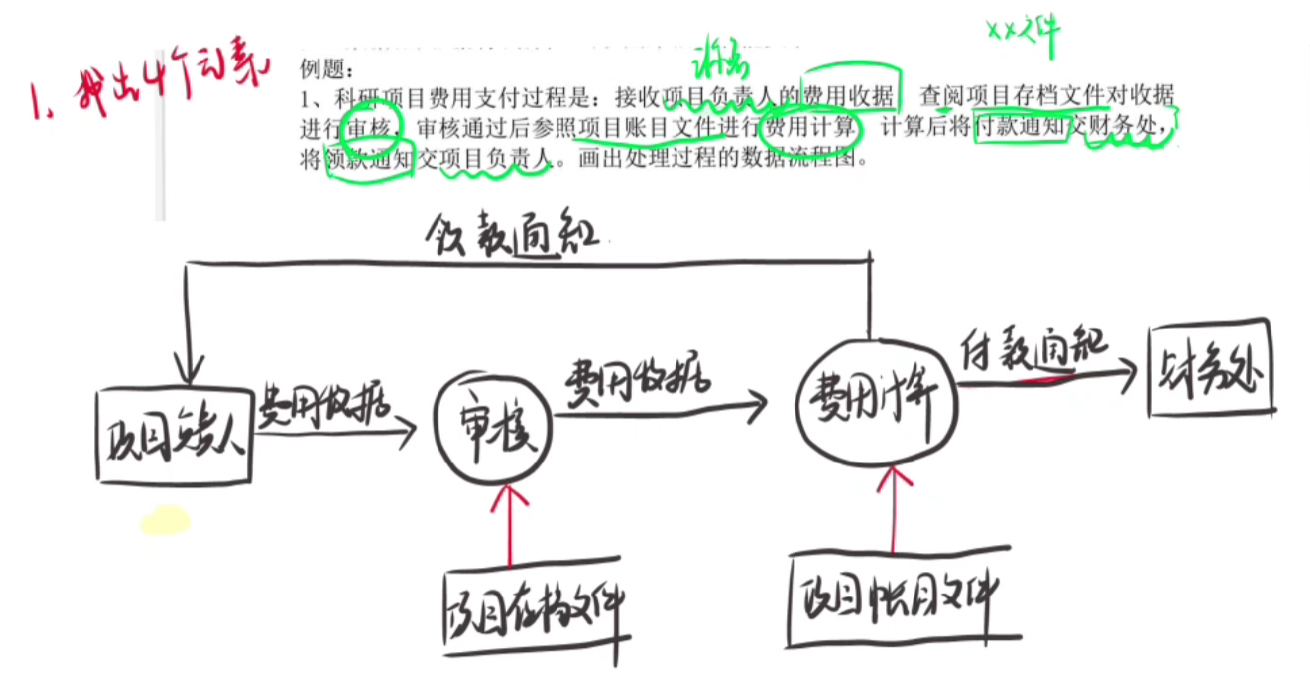 1、找出4个元素
源点
xx文件
例题：
1、科研项目费用支付过程是：接收项目负责人的费用收据 查阅项目存档文件对收据
进行审核，审核通过后参照项目账目文件进行费用计算 计算后将付款通知交财务处，
将领款通知交项目负责人。画出处理过程的数据流程图。
领款通知
项目负责人
费用收据
审核
费用收据
费用计算
付款通知
财务处
项目存档文件
项目帐目文件